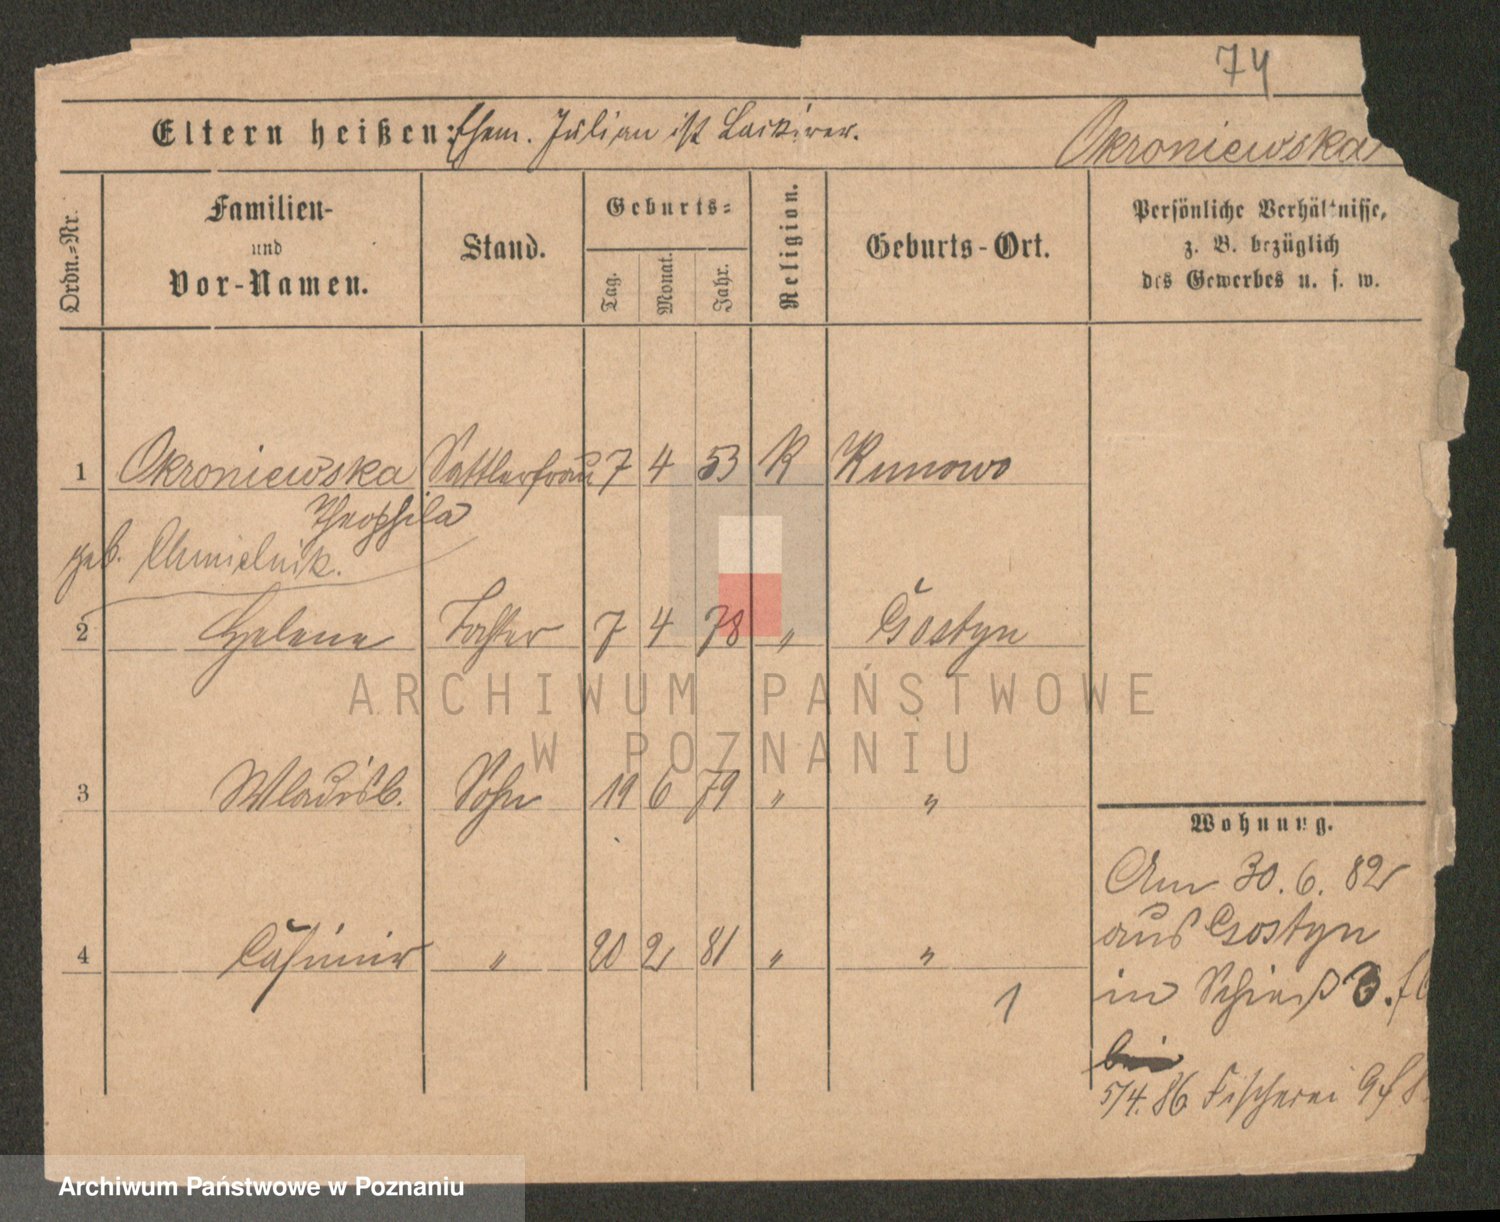 74
Eltern heißen: Ehem. Julian ist Lackirer. Okroniewska
Ordn.=Nr. Familien- und Vor-Namen. Stand. Geburts= Tag. Monat. Jahr. Religion. Geburts-Ort. Persönliche Verhältnisse, z. B. bezüglich des Gewerbes u. s. w.
1 Okroniewska Sattlerfrau 7 4 53 K Kunowo
Theophila
geb. Chmielnik.
2 Helene Tochter 7 4 78 " Gostyn
ARCHIWUM PAŃSTWOWE
W POZNANIU
3 Wladisl. Sohn 19 6 79 " "
Wohnung.
Am 30. 6. 82
aus Gostyn
4 Casimir " 20 2 81 " "
in Schieß 3.
1
bei
5/4. 86 Fischerei 9
Archiwum Państwowe w Poznaniu